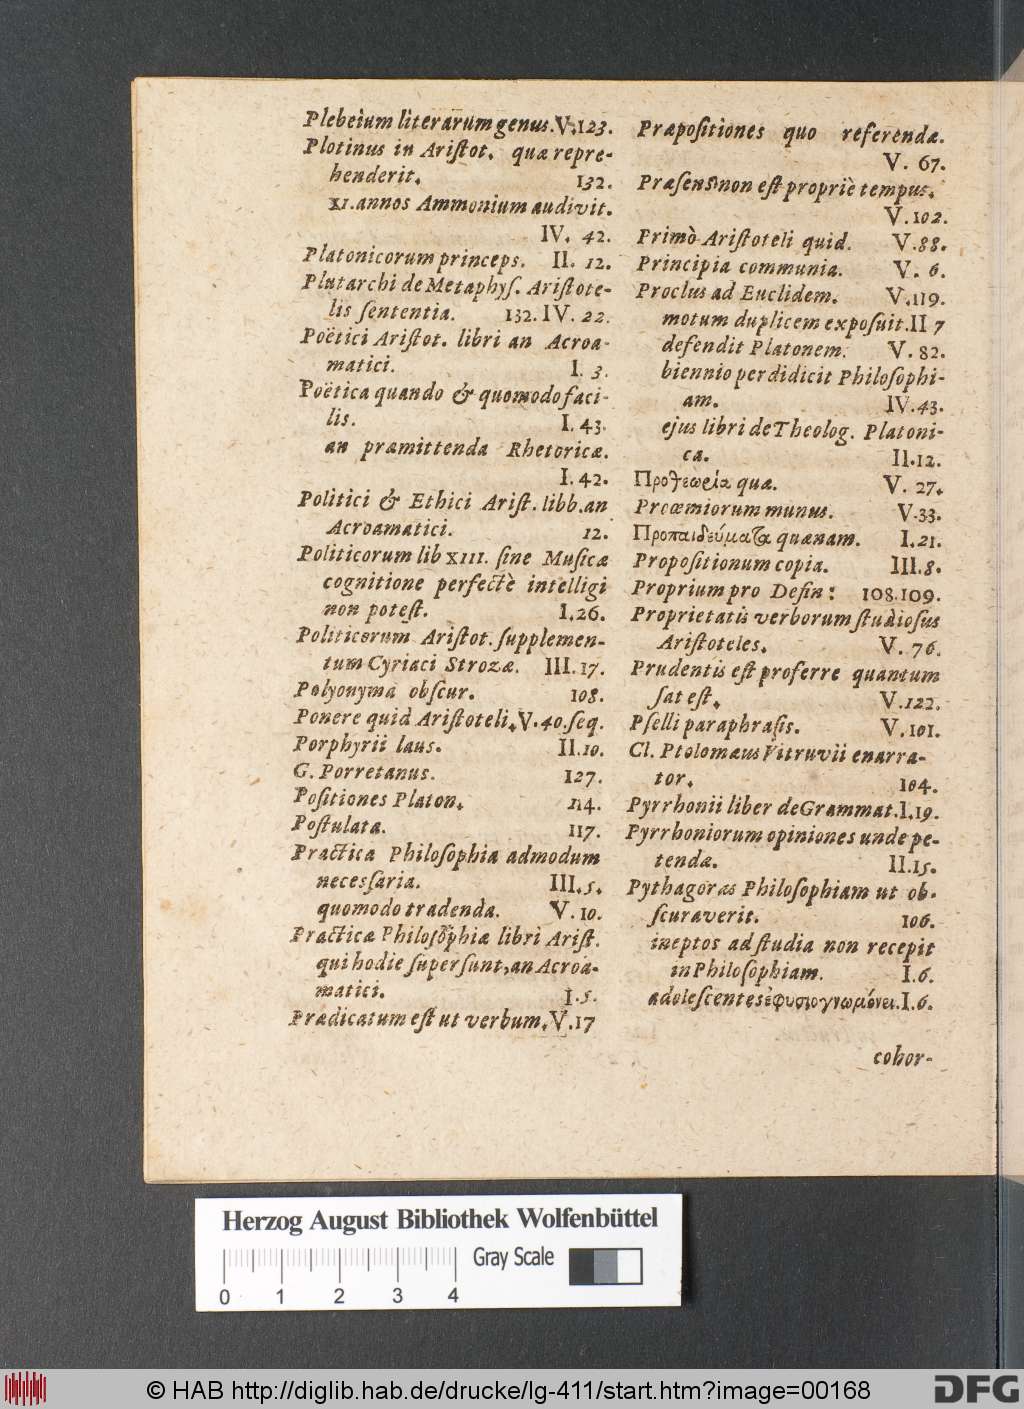 Plebeium literarum genus. V. 123.
Plotinus in Aristot. quæ repre-
henderit. 132.
XI. annos Ammonium audivit.
IV. 42.
Platonicorum princeps. II. 12.
Plutarchi de Metaphyſ. Ariſtote-
lis ſententia. 132. IV. 22.
Poëtici Ariſtot. libri an Acroa-
matici. I. 3.
Poëtica quando & quomodo faci-
lis. I. 43.
an præmittenda Rhetoricæ.
I. 42.
Politici & Ethici Ariſt. libb. an
Acroamatici. 12.
Politicorum lib XIII. ſine Muſicæ
cognitione perfectè intelligi
non poteſt. I. 26.
Politicorum Ariſtot. ſupplemen-
tum Cyriaci Strozæ. III. 17.
Polyonyma obſcur. 108.
Ponere quid Ariſtoteli. V. 40. ſeq.
Porphyrii laus. II. 10.
G. Porretanus. 127.
Poſitiones Platon. 114.
Poſtulata. 117.
Practica Philoſophia admodum
neceſſaria. III. 5.
quomodo tradenda. V. 10.
Practicæ Philoſophiæ libri Ariſt.
qui hodie ſuperſunt, an Acroa-
matici. I. 5.
Prædicatum eſt ut verbum. V. 17
Præpoſitiones quo referendæ.
V. 67.
Præſens non eſt propriè tempus.
V. 102.
Primò Ariſtoteli quid. V. 88.
Principia communia. V. 6.
Proclus ad Euclidem. V. 119.
motum duplicem expoſuit. II 7
defendit Platonem. V. 82.
biennio perdidicit Philoſophi-
am. IV. 43.
ejus libri de Theolog. Platoni-
ca. II. 12.
Προθεωρία quæ. V. 27.
Proœmiorum munus. V. 33.
Προπαιδεύματα quænam. I. 21.
Propoſitionum copia. III. 8.
Proprium pro Defin: 108. 109.
Proprietatis verborum ſtudioſus
Ariſtoteles. V. 76.
Prudentis eſt proferre quantum
ſat eſt. V. 122.
Pſelli paraphraſis. V. 101.
Cl. Ptolomæus Vitruvii enarra-
tor. 104.
Pyrrhonii liber de Grammat. I. 19.
Pyrrhoniorum opiniones unde pe-
tendæ. II. 15.
Pythagoras Philoſophiam ut ob-
ſcuraverit. 106.
ineptos ad ſtudia non recepit
in Philoſophiam. I. 6.
adoleſcentes ἐφυσιογνωμόνει. I. 6.
cohor-
Herzog August Bibliothek Wolfenbüttel
Gray Scale
0 1 2 3 4
© HAB http://diglib.hab.de/drucke/lg-411/start.htm?image=00168
DFG